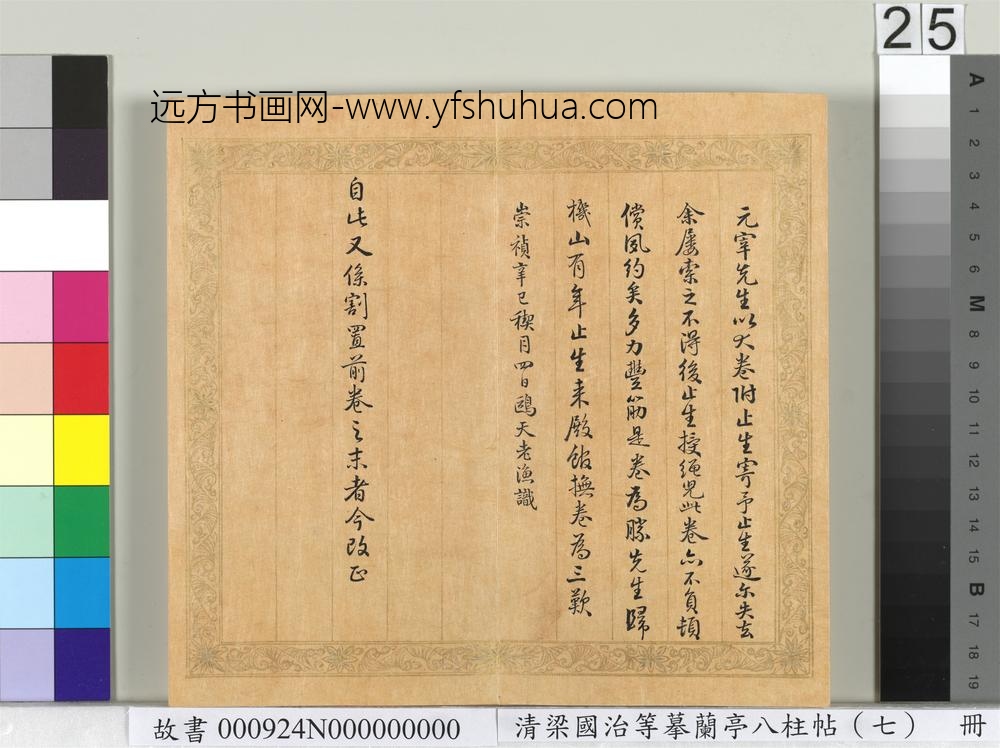 25
远方书画网-www.yfshuhua.com
元宰先生以大卷附止生寄予止生遂尔失去
余屡索之不得後止生授绳兒此卷六不負頓
償夙約矣多力豐筋是卷為勝先生歸
機山有年止生来殿飯撫卷為三歎
崇禎辛巳稧月四日鷗天老漁識
自此又係割置前卷之末者今改正
A
1
2
3
4
5
6
M
8
9
10
11
12
13
14
15
B
17
18
19
故書 000924N000000000
清梁國治等摹蘭亭八柱帖（七） 冊